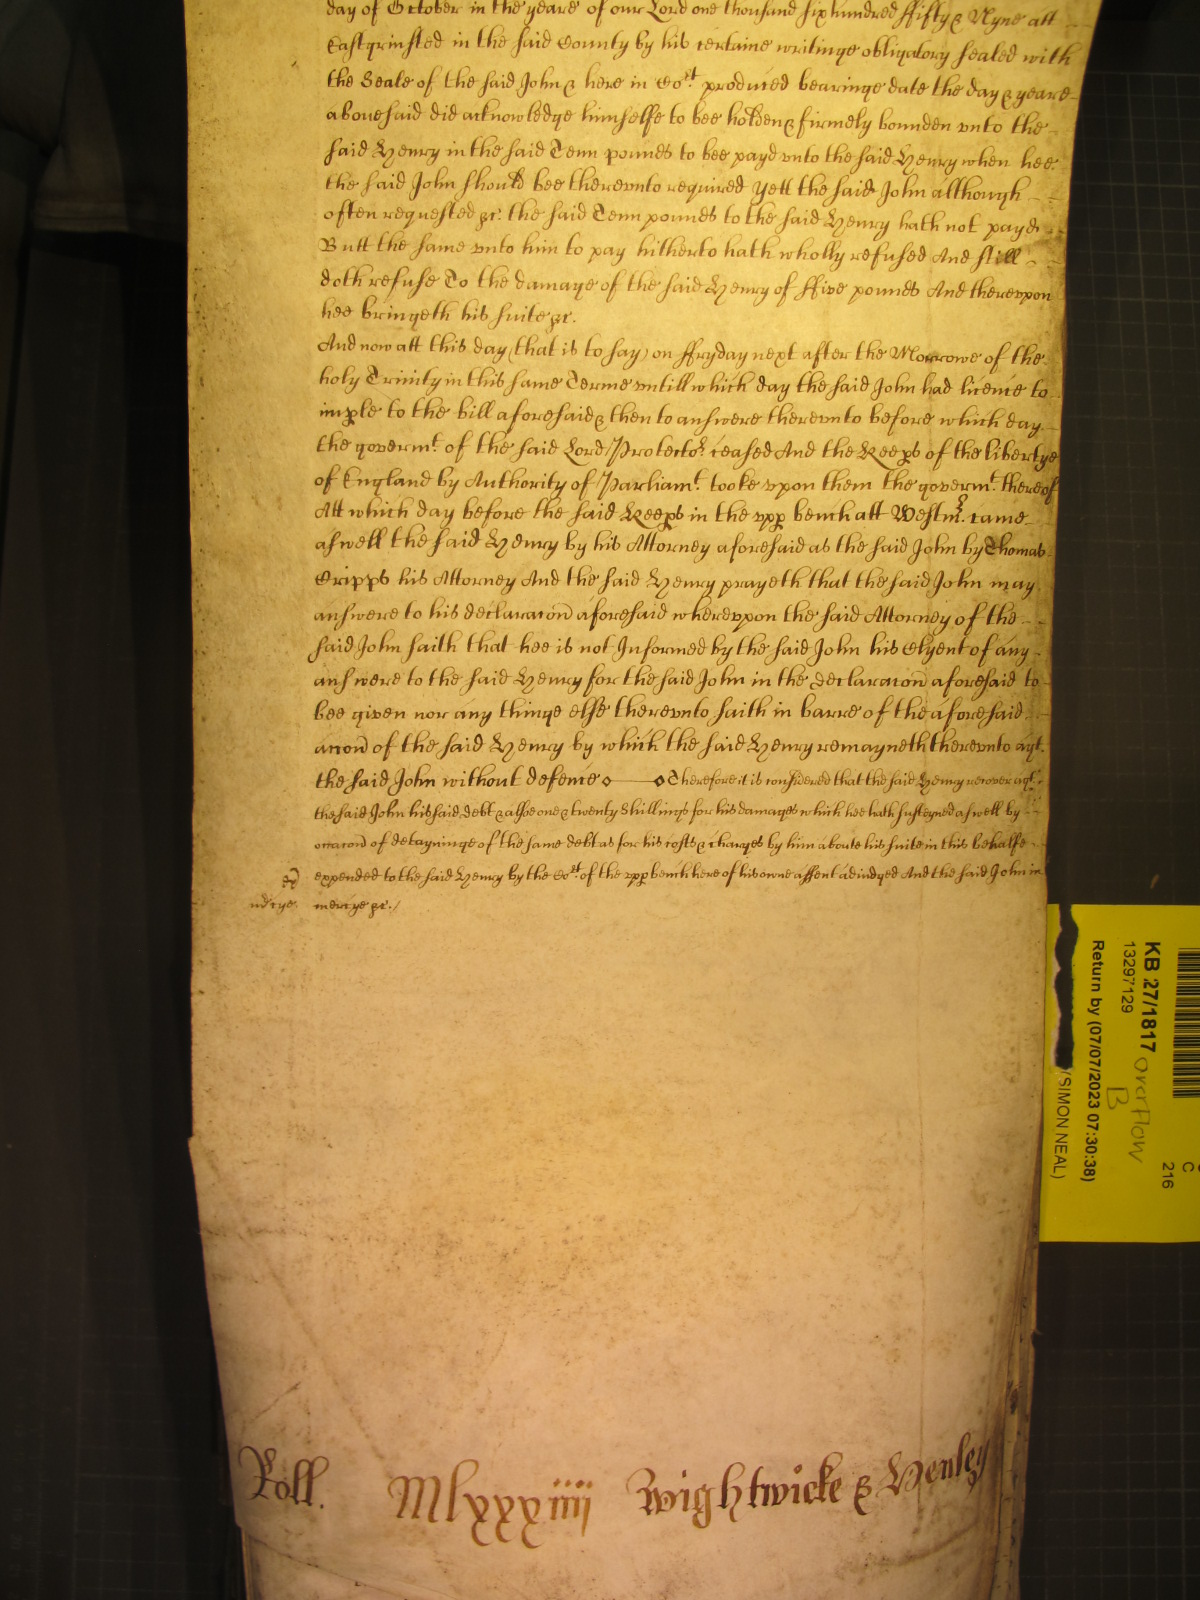 day of October in the yeare of our Lord one thousand six hundred ffifty & Nyne att
Eastgrinsted in the said County by his certaine writinge obligatory sealed with
the Seale of the said John & here in Cort produced bearinge date the day & yeare
abouesaid did acknowledge himselfe to bee holden & firmely bounden vnto the
said Henry in the said Tenn pounds to bee payd vnto the said Henry when hee
the said John should bee therevnto required yett the said John although
often requested &c. the said Tenn pounds to the said Henry hath not payd
Butt the same vnto him to pay hitherto hath wholly refused And still
doth refuse To the damage of the said Henry of ffive pounds And therevpon
hee bringeth his suite &c.
And now att this day (that is to say) on ffryday next after the Morrowe of the
holy Trinity in this same Terme vntill which day the said John had licence to
imple to the bill aforesaid & then to answere therevnto before which day
the govermt of the said Lord Protector ceased And the Keeps of the libertye
of England by Authority of Parliamt tooke vpon them the govermt thereof
Att which day before the said Keeps in the vpp bench att Westmr. came
aswell the said Henry by his Attorney aforesaid as the said John by Thomas
Cripps his Attorney And the said Henry prayeth that the said John may
answere to his declaracon aforesaid wherevpon the said Attorney of the
said John saith that hee is not Informed by the said John his Clyent of any
answere to the said Henry for the said John in the declaracon aforesaid to
bee given nor any thinge else therevnto saith in barre of the aforesaid
accon of the said Henry by which the said Henry remayneth therevnto agt.
the said John without defence Therefore it is considered that the said Henry recover agt.
the said John his said debt & alsoe one & twenty Shillings for his damages which hee hath susteyned aswell by
occacon of detayninge of the same debt as for his costs & charges by him aboute his suite in this behalfe
expended to the said Henry by the Cort of the vpp bench here of his owne assent adiudged And the said John in
mercye &c./
Roll. Mlxxxiiii Wightwicke & Henley
KB 27/1817 overflow B
13297129
Return by (07/07/2023 07:30:38)
(SIMON NEAL)
C
216